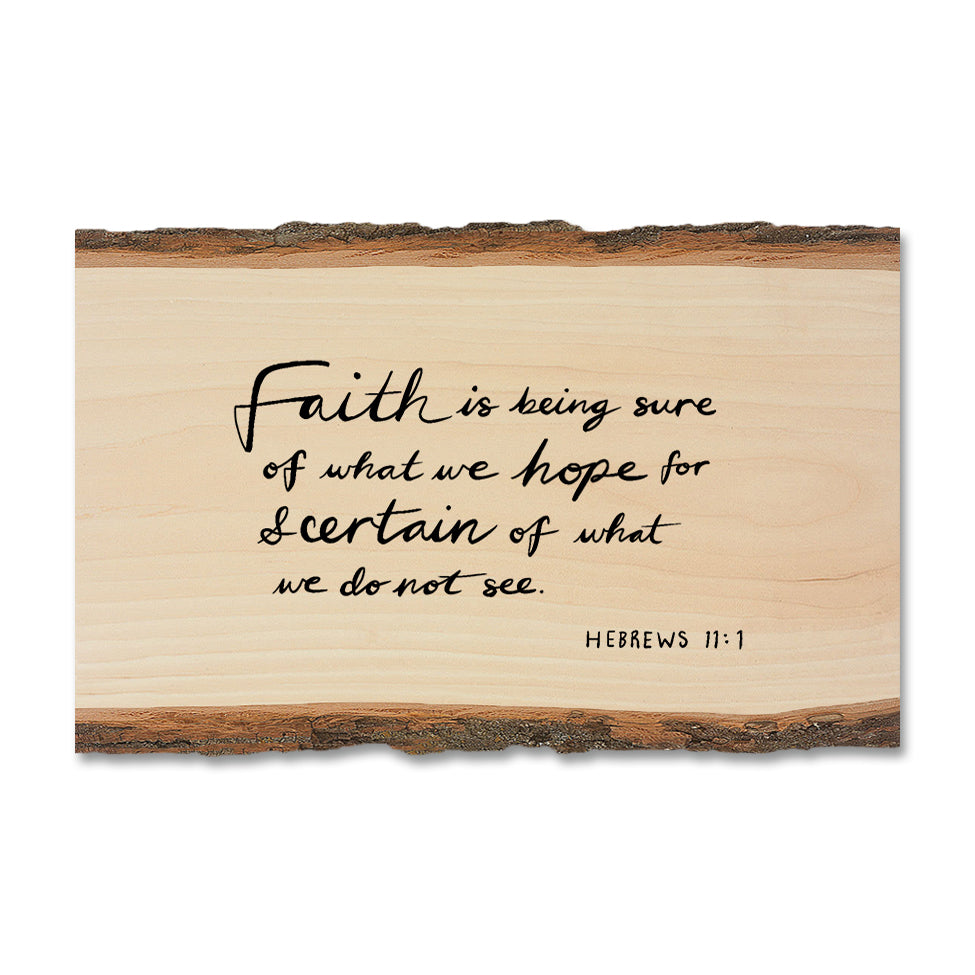 Faith is being sure
of what we hope for
& certain of what
we do not see.
HEBREWS 11:1